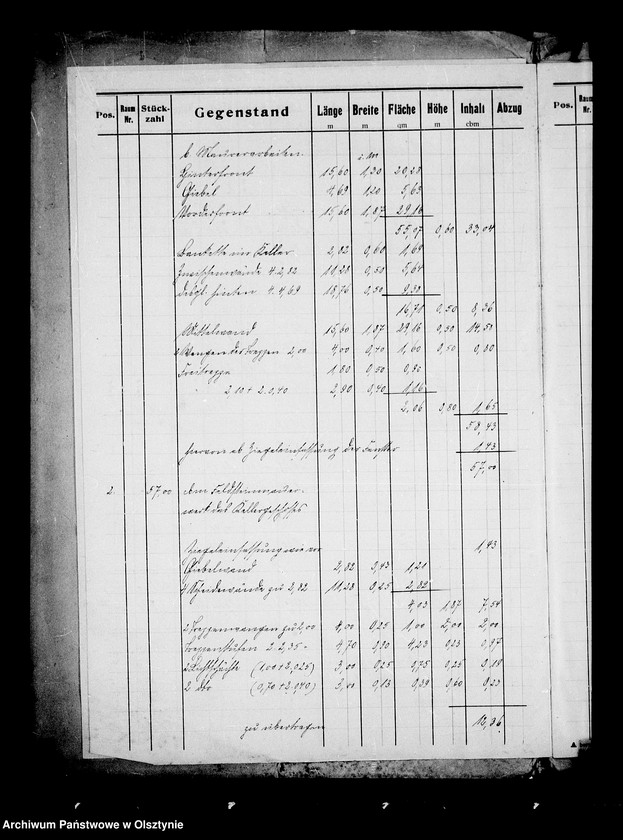 Pos. Raum Nr. Stück-zahl Gegenstand Länge m Breite m Fläche qm Höhe m Inhalt cbm Abzug
Pos. Raum Nr.
b. Maurerarbeiten.
Hinterfront 15,60 1,30 20,28
Giebel 4,69 1,20 5,63
Vorderfront 15,60 1,87 29,16
55,07 0,60 33,04
Bankette im Keller 2,82 0,60 1,69
4. 2,82 11,28 0,50 5,64
desgl. hinten 4. 4,69 18,76 0,50 9,38
16,71 0,50 8,36
Mittelwand 15,60 1,87 29,16 0,50 14,58
2 Wangen der Treppen 2,00 4,00 0,40 1,60 0,50 0,80
Freitreppe 1,80 0,50 0,90
2,10 + 2. 0,40 2,90 0,40 1,16
2,06 0,80 1,65
58,43
hiervon ab Ziegeleinfassung der Fenster 1,43
57,00
2. 57,00 cbm Feldsteinmauer-
werk des Kellergeschosses
Ziegeleinfassung wie vor 1,43
Giebelwand 2,82 0,43 1,21
4 Scheidewände zu 2,82 11,28 0,25 2,82
4,03 1,87 7,54
2 Treppenwangen zu 2,00 4,00 0,25 1,00 2,00 2,00
Treppenstufen 2. 2,35 = 4,70
2 Lichtschächte 3,00 0,25 0,75 0,25 0,19
2 dto 3,00 0,13 0,39 0,60 0,23
zu übertragen 12,36
Archiwum Państwowe w Olsztynie